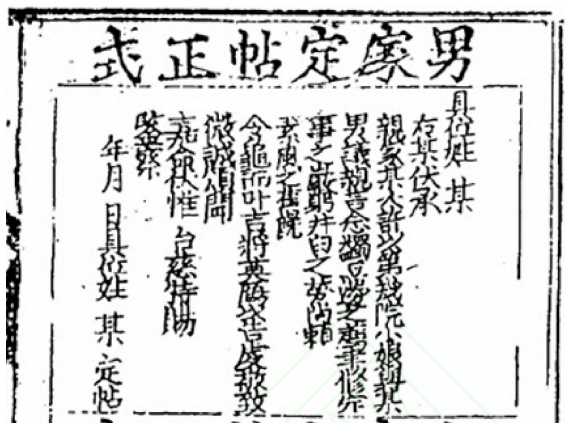 男家定帖正式
具位姓 某
右某伏承
親家某人許以第幾院小娘與某
男議親言念蠲豆籩之薦聿修宗
事之嚴躬井臼之勞尚賴
素風之相既
令龜而叶吉將奠鴈以告虔敬致
微誠願聞
嘉命伏惟 台慈特賜
鑒察
年月 日具位姓 某 定帖